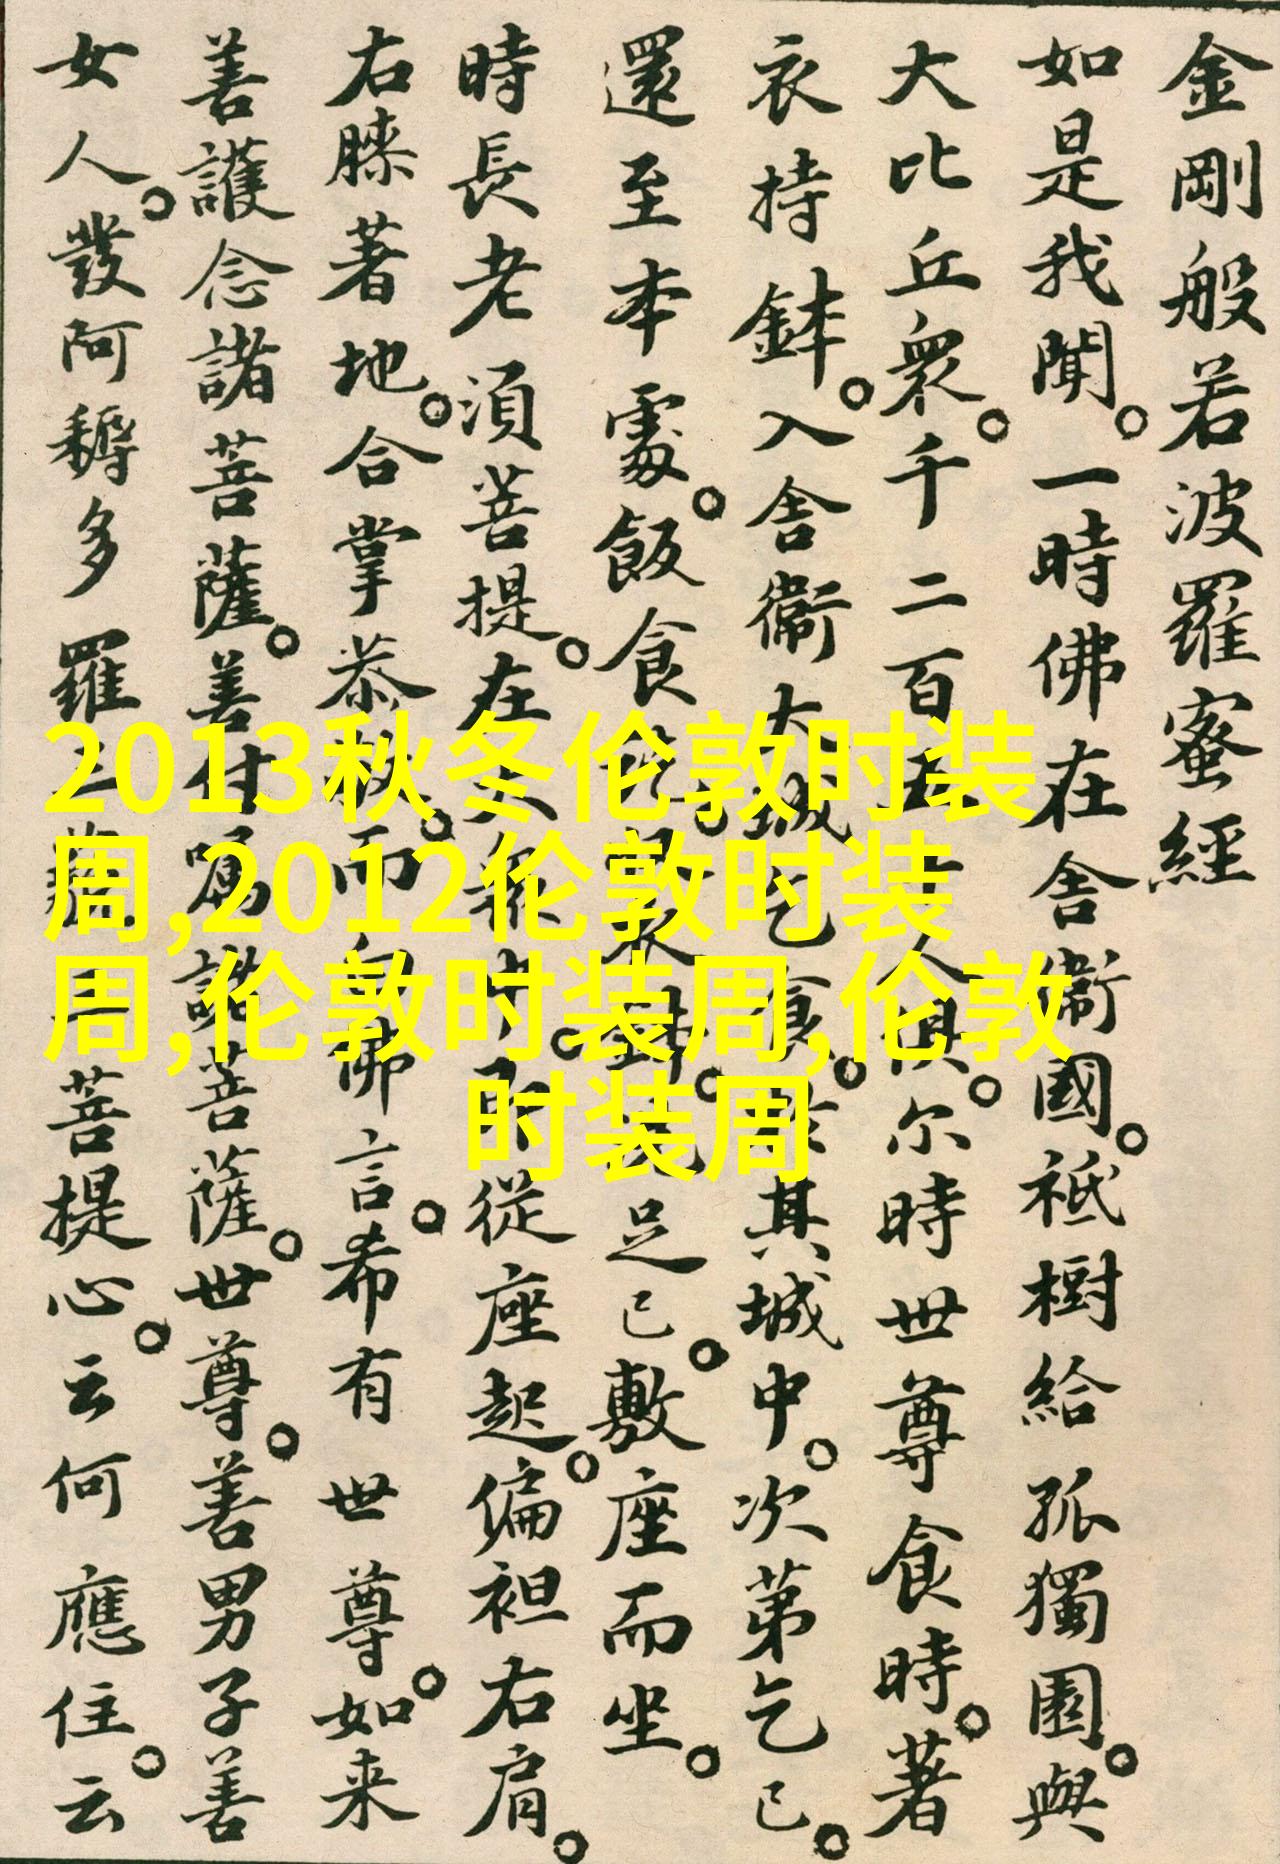 金剛般若波羅蜜經
如是我聞。一時佛在舍衞國。祇樹給孤獨園。與
大比丘衆。千二百五十人俱。尔時世尊食時。著
衣持鉢。入舍衞大城乞食。於其城中。次第乞已。
還至本處。飯食訖。收衣鉢。洗足已。敷座而坐。
時長老須菩提。在大衆中。即從座起。偏袒右肩。
右膝著地。合掌恭敬。而白佛言。希有世尊。如来
善護念諸菩薩。善付嘱諸菩薩。世尊。善男子善
女人。發阿耨多羅三藐三菩提心。云何應住。云
2013秋冬伦敦时装
周,2012伦敦时装
周,伦敦时装周,伦敦
时装周